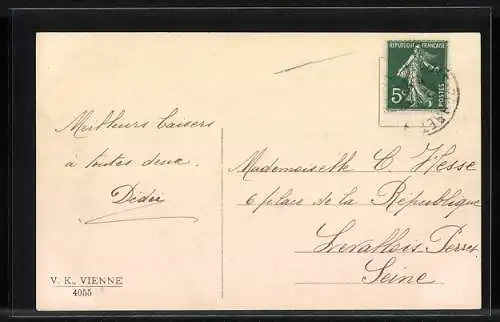 REPUBLIQUE FRANÇAISE
5c
POSTES
Meilleurs baisers
à toutes deux.
Didier
Mademoiselle C. Hesse
6 place de la République
Levallois-Perret
Seine
V. K., VIENNE
4055